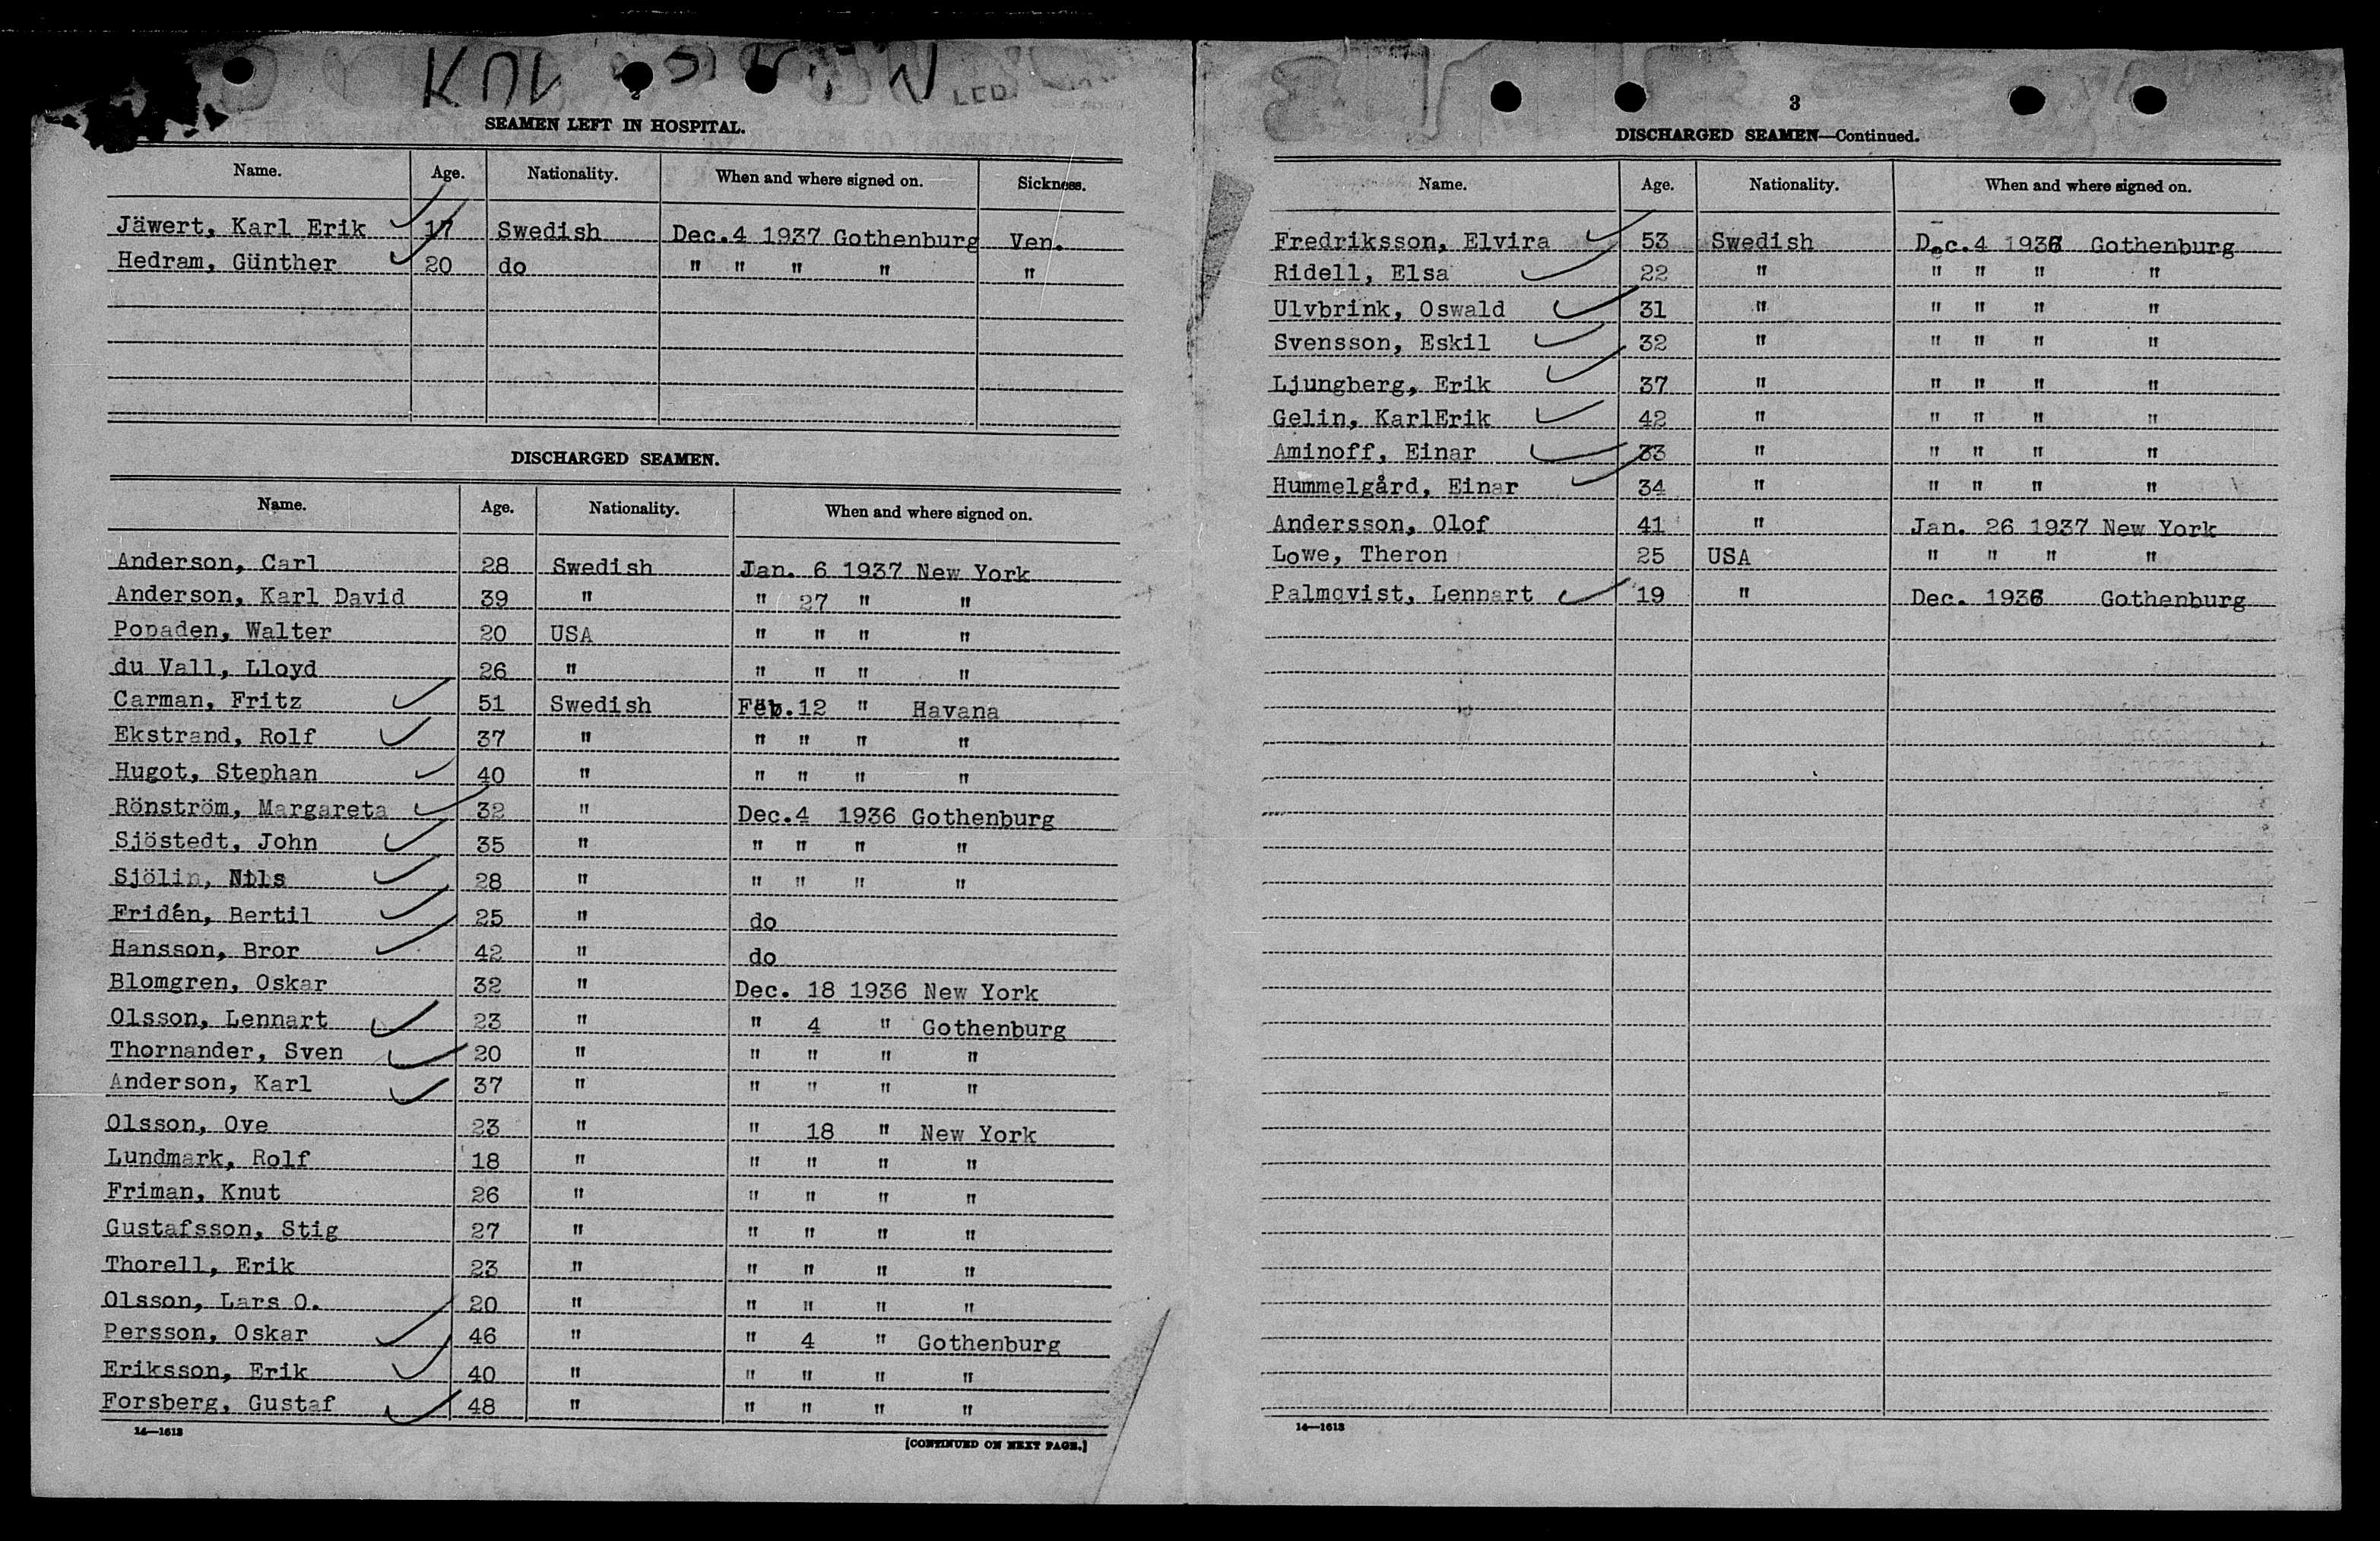 KUN
LED
2
SEAMEN LEFT IN HOSPITAL.
Name. Age. Nationality. When and where signed on. Sickness.
Jäwert, Karl Erik 17 Swedish Dec.4 1937 Gothenburg Ven.
Hedram, Günther 20 do " " " " "
DISCHARGED SEAMEN.
Name. Age. Nationality. When and where signed on.
Anderson, Carl 28 Swedish Jan. 6 1937 New York
Anderson, Karl David 39 " " 27 " "
Popaden, Walter 20 USA " " " "
du Vall, Lloyd 26 " " " " "
Carman, Fritz 51 Swedish Feb.12 " Havana
Ekstrand, Rolf 37 " " " " "
Hugot, Stephan 40 " " " " "
Rönström, Margareta 32 " Dec.4 1936 Gothenburg
Sjöstedt, John 35 " " " " "
Sjölin, Nils 28 " " " " "
Fridén, Bertil 25 " do
Hansson, Bror 42 " do
Blomgren, Oskar 32 " Dec. 18 1936 New York
Olsson, Lennart 23 " " 4 " Gothenburg
Thornander, Sven 20 " " " " "
Anderson, Karl 37 " " " " "
Olsson, Ove 23 " " 18 " New York
Lundmark, Rolf 18 " " " " "
Friman, Knut 26 " " " " "
Gustafsson, Stig 27 " " " " "
Thorell, Erik 23 " " " " "
Olsson, Lars O. 20 " " " " "
Persson, Oskar 46 " " 4 " Gothenburg
Eriksson, Erik 40 " " " " "
Forsberg, Gustaf 48 " " " " "
14—1613
[CONTINUED ON NEXT PAGE.]
3
DISCHARGED SEAMEN—Continued.
Name. Age. Nationality. When and where signed on.
Fredriksson, Elvira 53 Swedish Dec.4 1936 Gothenburg
Ridell, Elsa 22 " " " " "
Ulvbrink, Oswald 31 " " " " "
Svensson, Eskil 32 " " " " "
Ljungberg, Erik 37 " " " " "
Gelin, KarlErik 42 " " " " "
Aminoff, Einar 33 " " " " "
Hummelgård, Einar 34 " " " " "
Andersson, Olof 41 " Jan. 26 1937 New York
Lowe, Theron 25 USA " " " "
Palmqvist, Lennart 19 " Dec. 1936 Gothenburg
14—1613